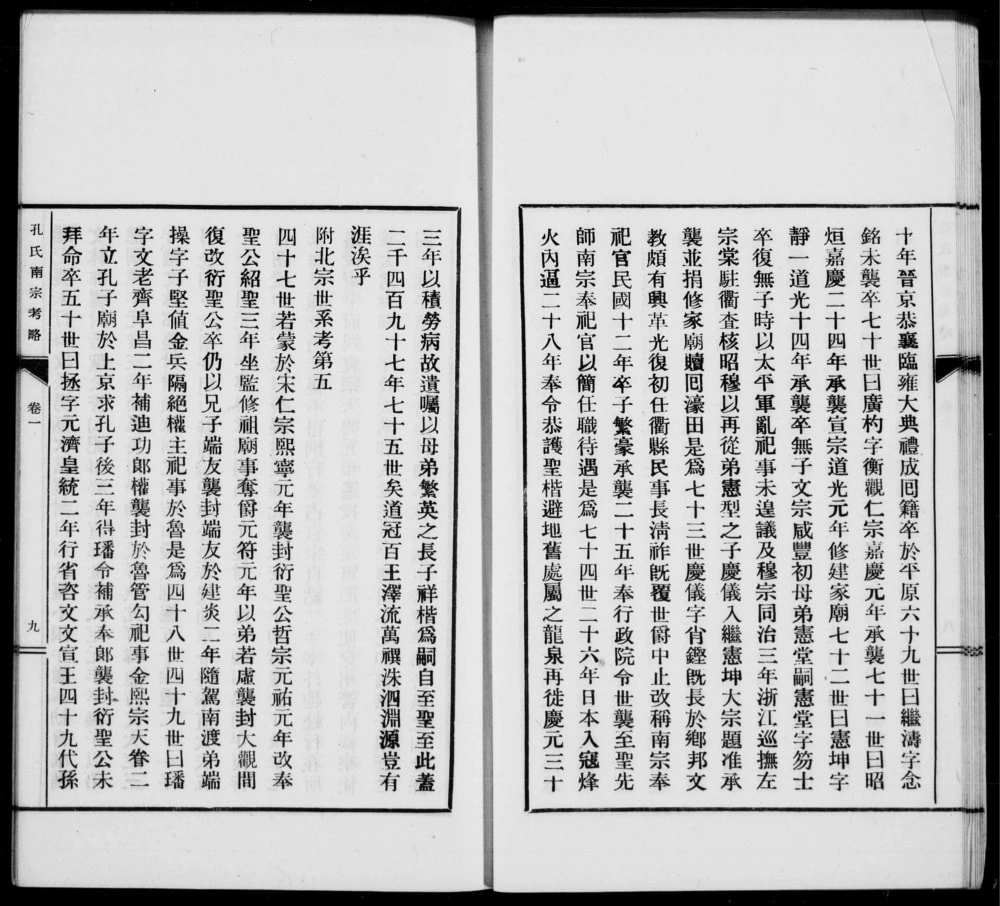 十年晉京恭襄臨雍大典禮成囘籍卒於平原六十九世曰繼濤字念
銘未襲卒七十世曰廣杓字衡觀仁宗嘉慶元年承襲七十一世曰昭
烜嘉慶二十四年承襲宣宗道光元年修建家廟七十二世曰憲坤字
靜一道光十四年承襲卒無子文宗咸豐初母弟憲堂嗣憲堂字笏士
卒復無子時以太平軍亂祀事未遑議及穆宗同治三年浙江巡撫左
宗棠駐衢査核昭穆以再從弟憲型之子慶儀入繼憲坤大宗題准承
襲並捐修家廟贖囘濠田是爲七十三世慶儀字肖鏗旣長於鄉邦文
教頗有興革光復初任衢縣民事長淸祚旣覆世爵中止改稱南宗奉
祀官民國十二年卒子繁豪承襲二十五年奉行政院令世襲至聖先
師南宗奉祀官以簡任職待遇是爲七十四世二十六年日本入寇烽
火內逼二十八年奉令恭護聖楷避地舊處屬之龍泉再徙慶元三十
三年以積勞病故遺囑以母弟繁英之長子祥楷爲嗣自至聖至此蓋
二千四百九十七年七十五世矣道冠百王澤流萬禩洙泗淵源豈有
涯涘乎
附北宗世系考第五
四十七世若蒙於宋仁宗熙寧元年襲封衍聖公哲宗元祐元年改奉
聖公紹聖三年坐監修祖廟事奪爵元符元年以弟若虛襲封大觀間
復改衍聖公卒仍以兄子端友襲封端友於建炎二年隨駕南渡弟端
操字子堅値金兵隔絕權主祀事於魯是爲四十八世四十九世曰璠
字文老齊阜昌二年補迪功郞權襲封於魯管勾祀事金熙宗天眷二
年立孔子廟於上京求孔子後三年得璠令補承奉郞襲封衍聖公未
拜命卒五十世曰拯字元濟皇統二年行省咨文文宣王四十九代孫
孔氏南宗考略
卷一
九